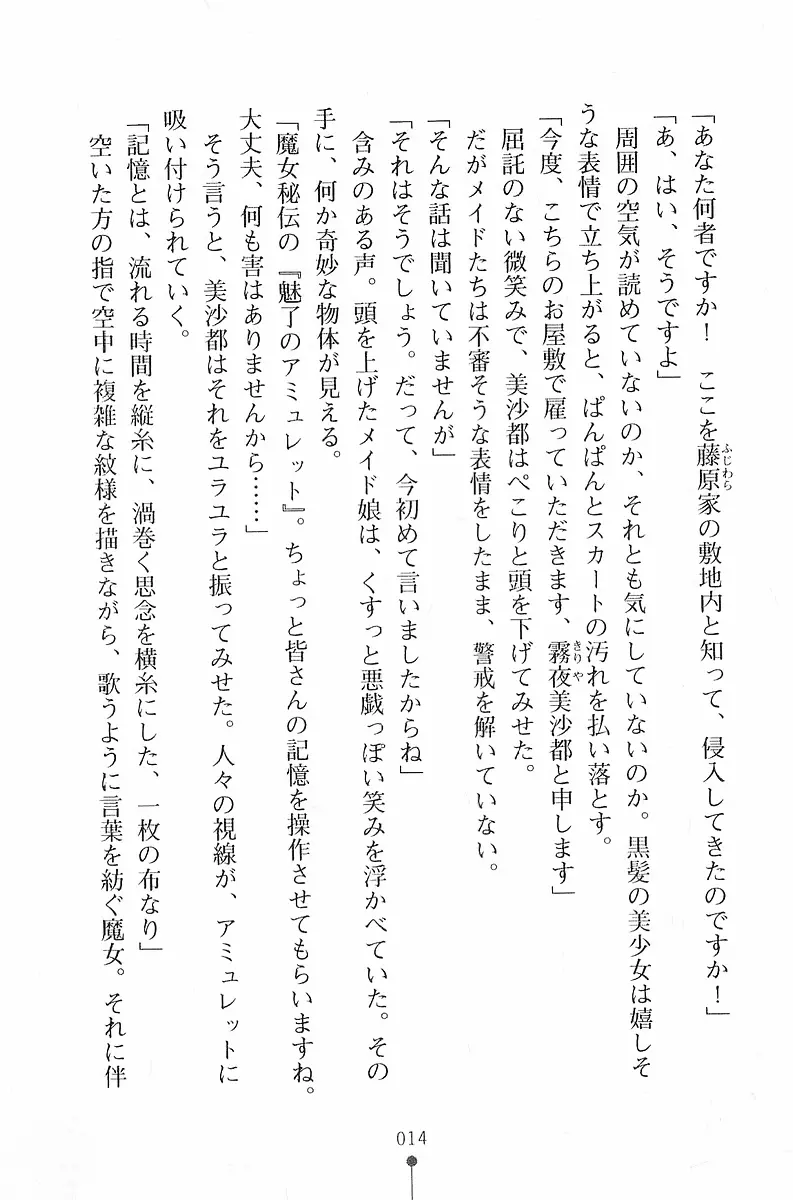 「あなた何者ですか！　ここを藤原家の敷地内と知って、侵入してきたのですか！」
「あ、はい、そうですよ」
　周囲の空気が読めていないのか、それとも気にしていないのか。黒髪の美少女は嬉しそ
うな表情で立ち上がると、ぱんぱんとスカートの汚れを払い落とす。
「今度、こちらのお屋敷で雇っていただきます、霧夜美沙都と申します」
　屈託のない微笑みで、美沙都はぺこりと頭を下げてみせた。
　だがメイドたちは不審そうな表情をしたまま、警戒を解いていない。
「そんな話は聞いていませんが」
「それはそうでしょう。だって、今初めて言いましたからね」
　含みのある声。頭を上げたメイド娘は、くすっと悪戯っぽい笑みを浮かべていた。その
手に、何か奇妙な物体が見える。
「魔女秘伝の『魅了のアミュレット』。ちょっと皆さんの記憶を操作させてもらいますね。
大丈夫、何も害はありませんから……」
　そう言うと、美沙都はそれをユラユラと振ってみせた。人々の視線が、アミュレットに
吸い付けられていく。
「記憶とは、流れる時間を縦糸に、渦巻く思念を横糸にした、一枚の布なり」
　空いた方の指で空中に複雑な紋様を描きながら、歌うように言葉を紡ぐ魔女。それに伴
014